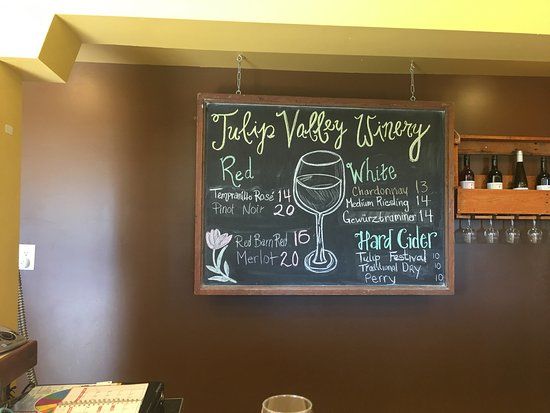 Tulip Valley Winery
Red
Tempranillo Rosé 14
Pinot Noir 20
Red Barn Red 15
Merlot 20
White
Chardonnay 13
Medium Riesling 14
Gewürztraminer 14
Hard Cider
Tulip Festival 10
Traditional Dry 10
Perry 10